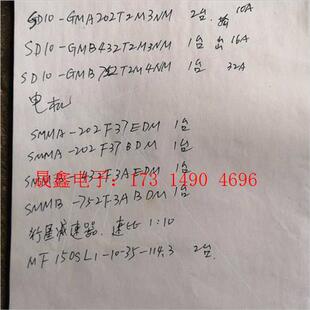 SD10-GMA202T2M3NM 2台 输 10A
SD10-GMB432T2M3NM 1台 出 16A
SD10-GMB752T2M4NM 1台 32A
电机
SMMA-202F37EDM 1台
SMMA-202F37BDM 1台
SMMB-432F3AEDM 1台
晟鑫电子: 173 1490 4696
SMMB-752F3ABDM 1台
行星减速器. 速比 1:10
MF150SL1-10-35-114.3 2台.